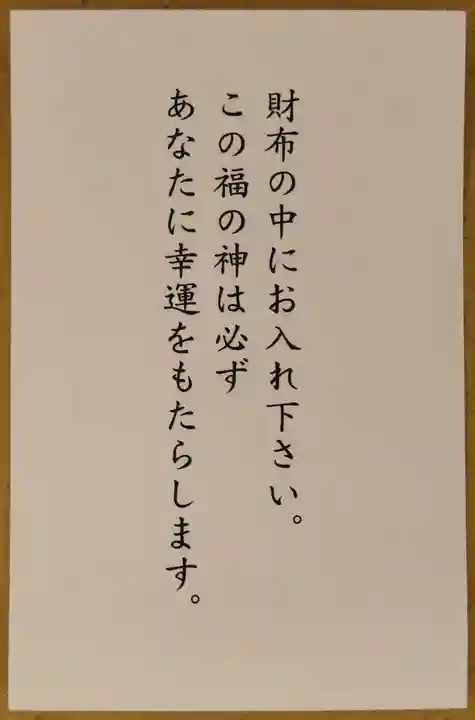 財布の中にお入れ下さい。
この福の神は必ず
あなたに幸運をもたらします。